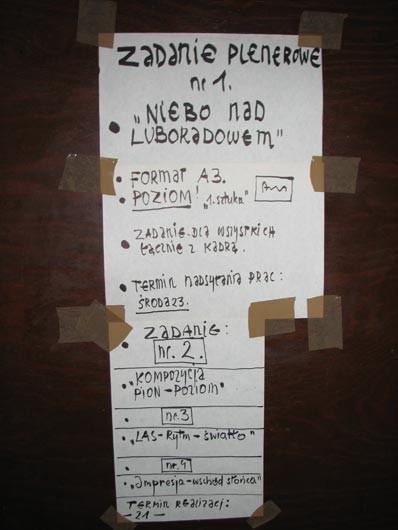 ZADANIE PLENEROWE
nr 1.
• „NIEBO nad
LUBORADOWEM"
• FORMAT A3.
• POZIOM! „1. sztuka"
• ZADANIE DLA WSZYSTKICH
ŁĄCZNIE Z KADRĄ.
• TERMIN NADSYŁANIA PRAC:
ŚRODA 23.
ZADANIE:
• nr. 2.
• „KOMPOZYCJA
PION-POZIOM"
• nr. 3
• „LAS-Rytm-światło"
• nr. 4
• „Impresja-wschód słońca"
TERMIN REALIZACJI:
- 21 -